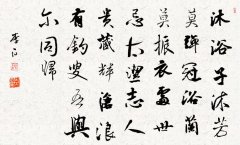 沐浴子沐芳
莫彈冠浴蘭
莫振衣處世
忌太潔志人
貴藏輝滄浪
有釣叟吾與
尔同歸